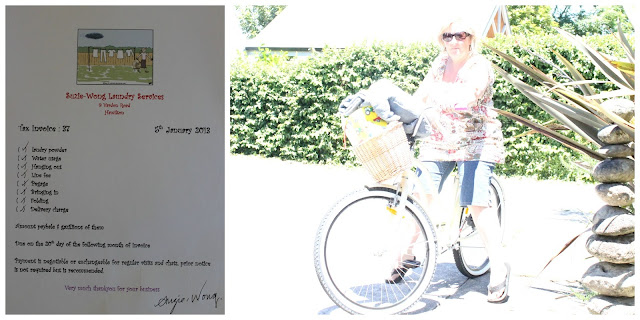 Suzie-Wong Laundry Services
Tax Invoice : 37
5th January 2013
( √ landry powder
( √ Water usage
( √ Hanging out
( √ Line fee
( √ Pegage
( √ Bringing in
( √ Folding
( √ Delivery charge
Amount payable 8 gazillions of them
Due on the 20th day of the following month of invoice
Payment is negotiable or exchangable for regular visits and chats, prior notice
is not required but is recommended.
Very much thankyou for your business
Suzie Wong.